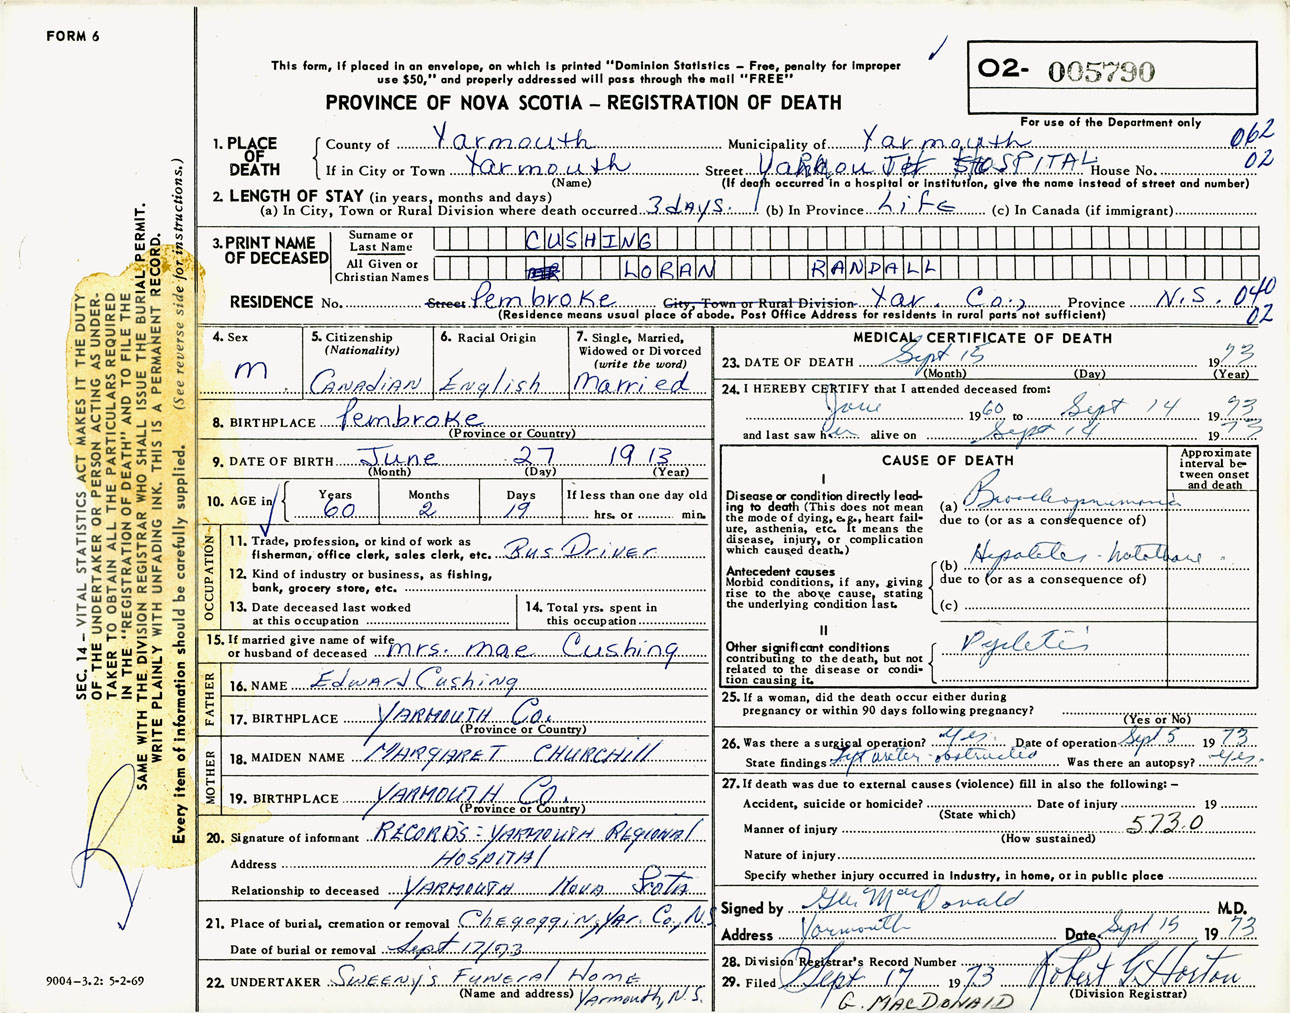 FORM 6
This form, if placed in an envelope, on which is printed "Dominion Statistics — Free, penalty for improper
use $50," and properly addressed will pass through the mail "FREE"
PROVINCE OF NOVA SCOTIA — REGISTRATION OF DEATH
O2- 005790
For use of the Department only
062
02
1. PLACE OF DEATH
County of Yarmouth Municipality of Yarmouth
If in City or Town Yarmouth Street HOSPITAL House No.
(Name) (If death occurred in a hospital or institution, give the name instead of street and number)
2. LENGTH OF STAY (in years, months and days)
(a) In City, Town or Rural Division where death occurred 3 days. (b) In Province Life (c) In Canada (if immigrant)
3. PRINT NAME OF DECEASED
Surname or Last Name CUSHING
All Given or Christian Names LORAN RANDALL
RESIDENCE No. Street Pembroke City, Town or Rural Division Yar. Co., Province N.S. 040
(Residence means usual place of abode. Post Office Address for residents in rural parts not sufficient) 02
4. Sex
M
5. Citizenship
(Nationality)
CANADIAN
6. Racial Origin
English
7. Single, Married,
Widowed or Divorced
(write the word)
Married
8. BIRTHPLACE Pembroke
(Province or Country)
9. DATE OF BIRTH June 27 1913
(Month) (Day) (Year)
10. AGE in
Years Months Days If less than one day old
60 2 19 hrs. or min.
OCCUPATION
11. Trade, profession, or kind of work as
fisherman, office clerk, sales clerk, etc. Bus Driver
12. Kind of industry or business, as fishing,
bank, grocery store, etc.
13. Date deceased last worked
at this occupation
14. Total yrs. spent in
this occupation
15. If married give name of wife
or husband of deceased Mrs. Mae Cushing
FATHER
16. NAME Edward Cushing
17. BIRTHPLACE YARMOUTH Co.
(Province or Country)
MOTHER
18. MAIDEN NAME MARGARET CHURCHILL
19. BIRTHPLACE YARMOUTH Co.
(Province or Country)
20. Signature of informant RECORDS - YARMOUTH REGIONAL
Address HOSPITAL
Relationship to deceased YARMOUTH NOVA SCOTIA
21. Place of burial, cremation or removal Chegoggin, Yar. Co., N.S
Date of burial or removal Sept 17/73
22. UNDERTAKER SWEENY'S FUNERAL HOME
(Name and address) Yarmouth, N.S.
MEDICAL CERTIFICATE OF DEATH
23. DATE OF DEATH Sept 15 1973
(Month) (Day) (Year)
24. I HEREBY CERTIFY that I attended deceased from:
June 1960 to Sept 14 1973
and last saw him alive on Sept 14 1973
CAUSE OF DEATH
Approximate interval between onset and death
I
Disease or condition directly lead-
ing to death (This does not mean
the mode of dying, e.g., heart fail-
ure, asthenia, etc. It means the
disease, injury, or complication
which caused death.)
(a) Bronchopneumonia
due to (or as a consequence of)
Antecedent causes
Morbid conditions, if any, giving
rise to the above cause, stating
the underlying condition last.
(b) Hepatitis - halothane
due to (or as a consequence of)
(c)
II
Other significant conditions
contributing to the death, but not
related to the disease or condi-
tion causing it.
Pyelitis
25. If a woman, did the death occur either during
pregnancy or within 90 days following pregnancy?
(Yes or No)
26. Was there a surgical operation? Yes. Date of operation Sept 5 1973
State findings ureter obstructed Was there an autopsy? Yes.
27. If death was due to external causes (violence) fill in also the following: —
Accident, suicide or homicide? Date of injury 19
(State which)
Manner of injury 573.0
(How sustained)
Nature of injury
Specify whether injury occurred in industry, in home, or in public place
Signed by MacDonald M.D.
Address Yarmouth Date Sept 15 1973
28. Division Registrar's Record Number
29. Filed Sept 17 1973 Robert G Horton
(Division Registrar)
G. MACDONALD
SEC. 14 — VITAL STATISTICS ACT MAKES IT THE DUTY
OF THE UNDERTAKER OR PERSON ACTING AS UNDER-
TAKER TO OBTAIN ALL THE PARTICULARS REQUIRED
IN THE "REGISTRATION OF DEATH" AND TO FILE THE
SAME WITH THE DIVISION REGISTRAR WHO SHALL ISSUE THE BURIAL PERMIT.
WRITE PLAINLY WITH UNFADING INK. THIS IS A PERMANENT RECORD.
Every item of information should be carefully supplied. (See reverse side for instructions.)
9004-3.2: 5-2-69